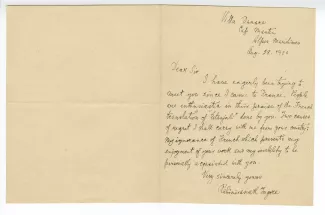 Villa
Cap Martin
Alpes Maritimes
Aug. 1920
Dear Sir
I have eagerly been trying to
meet you since I came to France. People
are enthusiastic in their praise of the French
translation of done by you. Two causes
of regret I shall carry with me from your country:
my ignorance of French which prevents my
enjoyment of your work and my inability to be
personally acquainted with you.
Very sincerely yours
Rabindranath Tagore